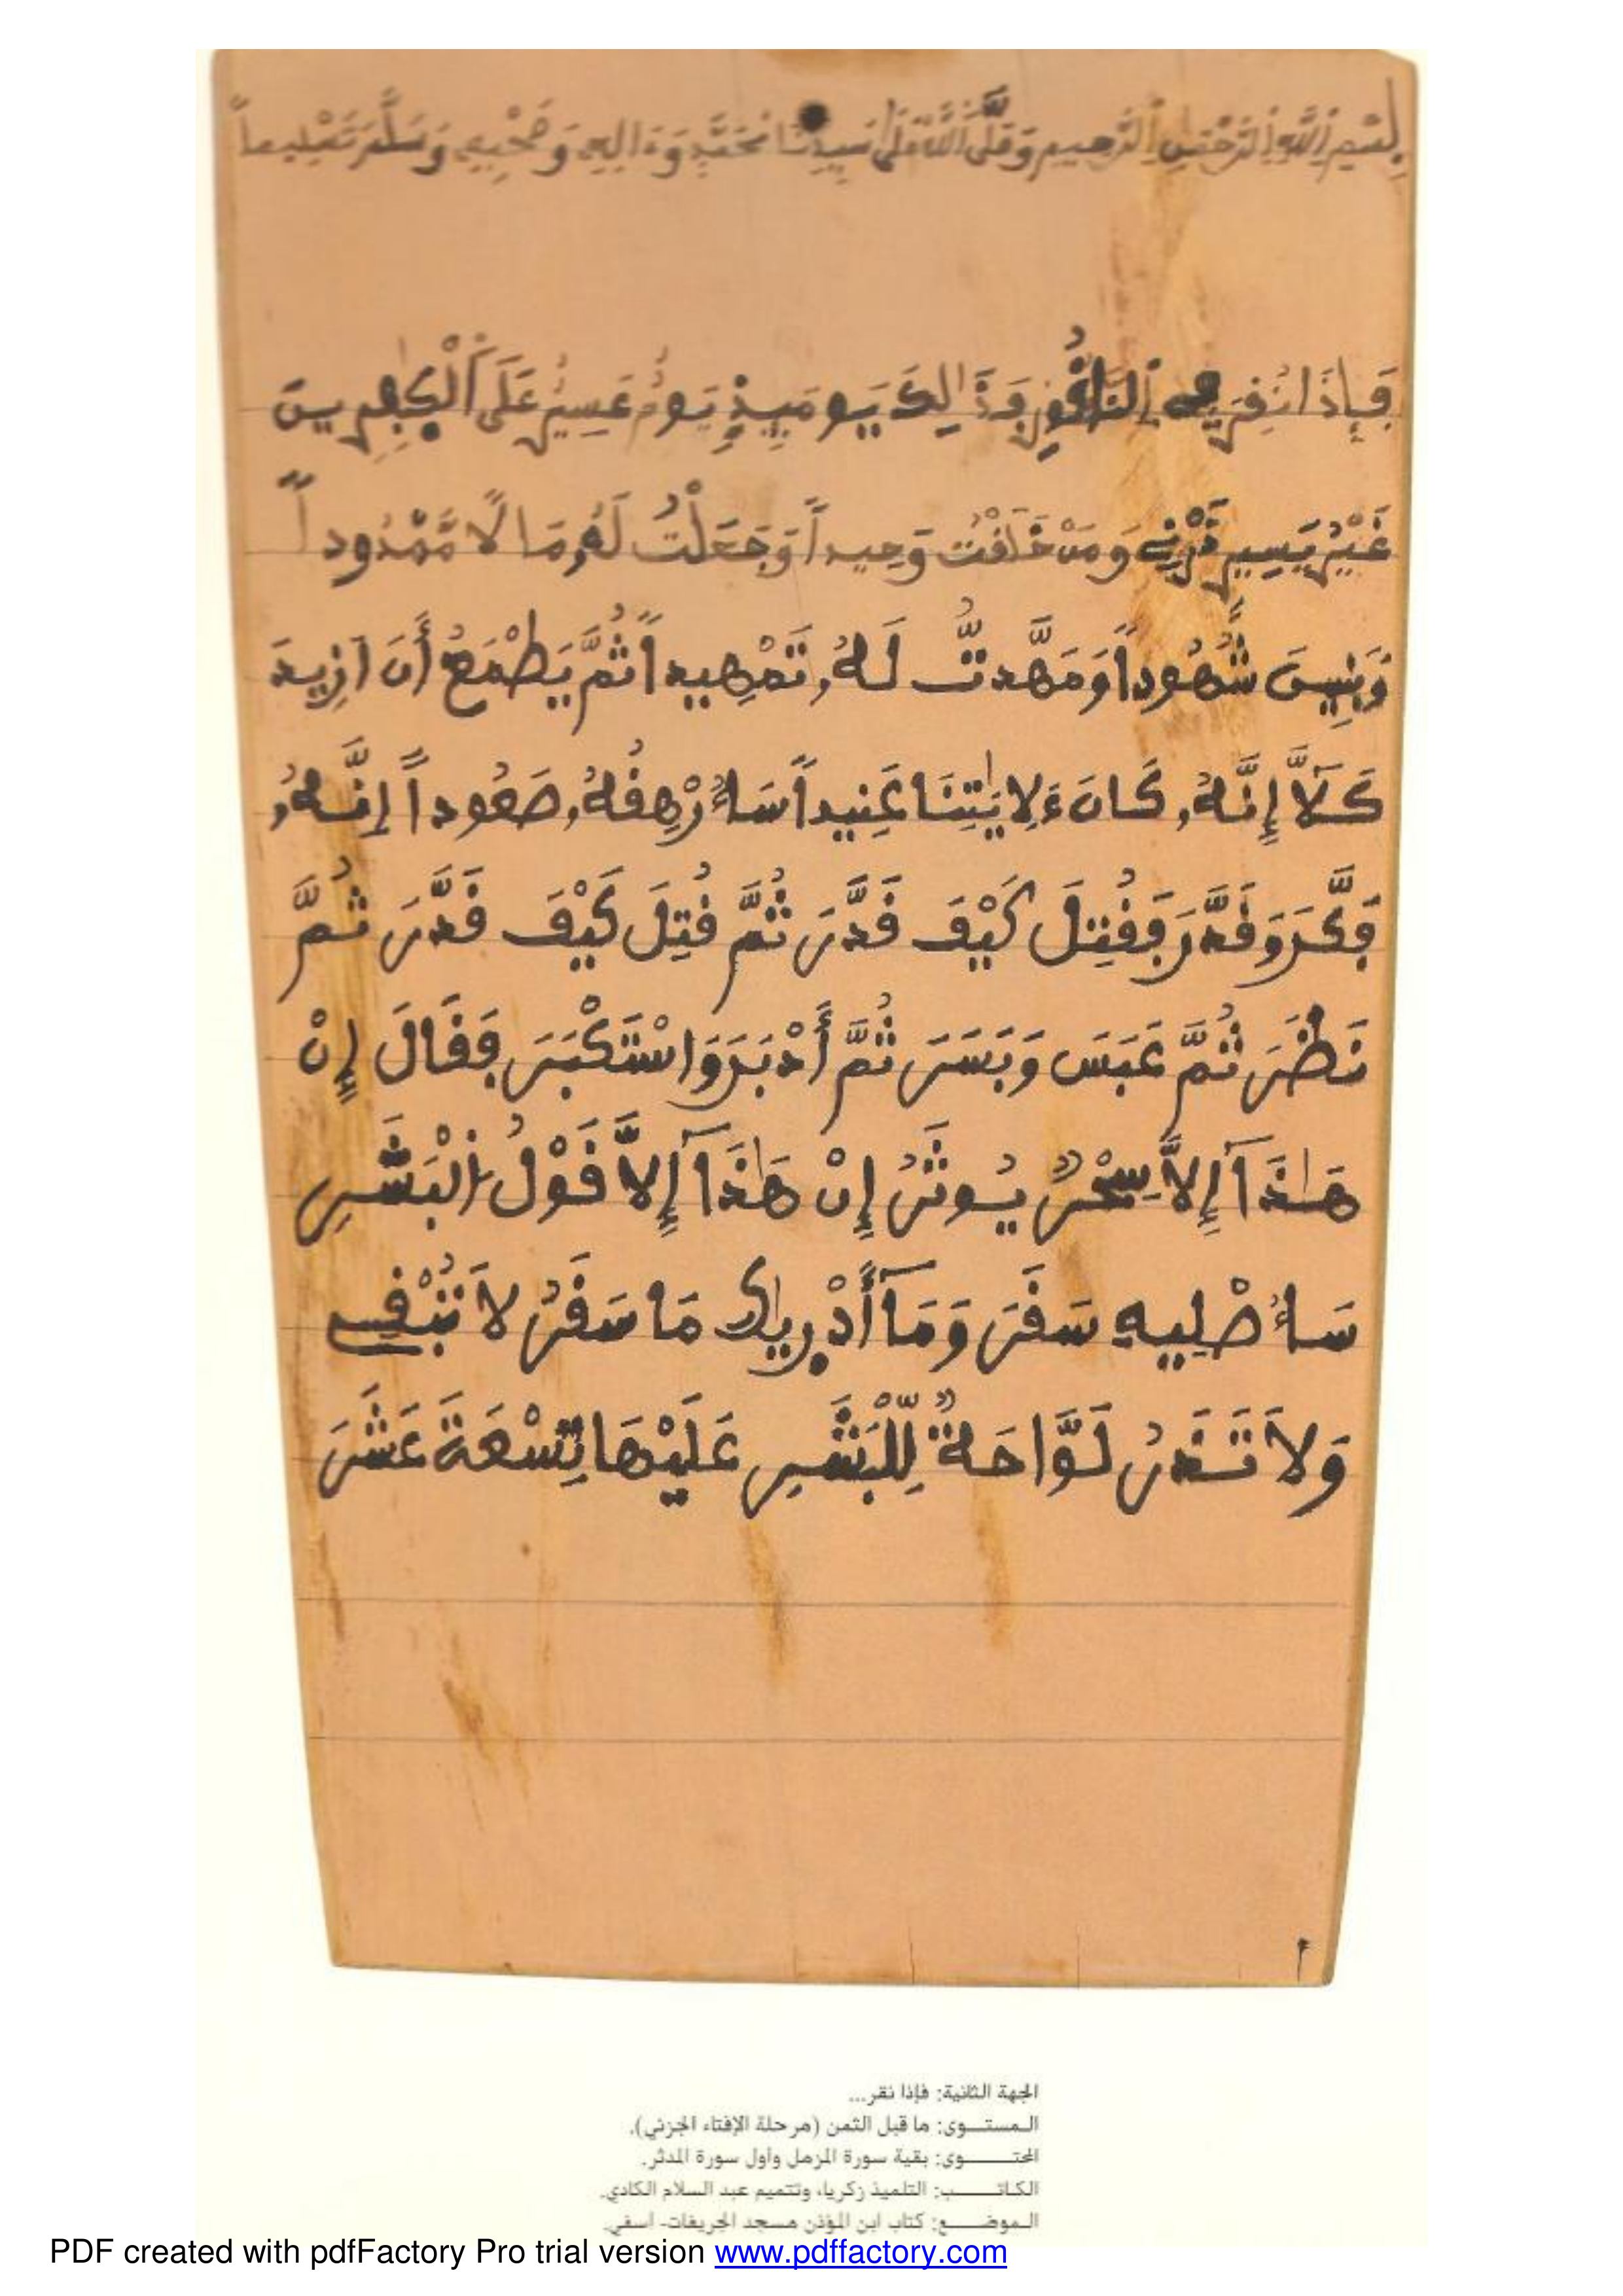 بِسْمِ اِللَّهِ اِلرَّحْمَٰنِ اِلرَّحِيمِ وَصَلَّى اَللَّهُ عَلَىٰ سَيِّدِنَا مُحَمَّدٍ وَءَالِهِ وَصَحْبِهِ وَسَلَّمَ تَسْلِيماً
فَإِذَا نُقِرَ فِے اِلنَّاقُورِ فَذَٰلِكَ يَوْمَئِذٍ يَوْمٌ عَسِيرٌ عَلَى اَلْكٰفِرِينَ
غَيْرُ يَسِيرٍ ذَرْنِے وَمَنْ خَلَقْتُ وَحِيداً وَجَعَلْتُ لَهُۥ مَالًا مَّمْدُوداً
وَبَنِينَ شُهُوداً وَمَهَّدتُّ لَهُۥ تَمْهِيداً ثُمَّ يَطْمَعُ أَنَ اَزِيدَ
كَلَّآ إِنَّهُۥ كَانَ ءَلِايَٰتِنَا عَنِيداً سَأُرْهِقُهُۥ صَعُوداً اِنَّهُۥ
فَكَّرَ وَقَدَّرَ فَقُتِلَ كَيْفَ قَدَّرَ ثُمَّ قُتِلَ كَيْفَ قَدَّرَ ثُمَّ
نَظَرَ ثُمَّ عَبَسَ وَبَسَرَ ثُمَّ أَدْبَرَ وَاسْتَكْبَرَ فَقَالَ إِنْ
هَٰذَآ إِلَّا سِحْرٌ يُوثَرُ إِنْ هَٰذَآ إِلَّا قَوْلُ اُلْبَشَرِ
سَأُصْلِيهِ سَقَرَ وَمَآ أَدْرٜيٰكَ مَا سَقَرُ لَا تُبْقِے
وَلَا تَذَرُ لَوَّاحَةٌ لِّلْبَشَرِ عَلَيْهَا تِسْعَةَ عَشَرَ
الجهة الثانية: فإذا نقر...
المستـــوى: ما قبل الثمن (مرحلة الإفتاء الجزئي).
المحتـــــوى: بقية سورة المزمل وأول سورة المدثر.
الكاتـــــب: التلميذ زكريا، وتتميم عبد السلام الكادي.
الموضـــــع: كتاب ابن المؤذن مسجد الجريفات- اسفي.
PDF created with pdfFactory Pro trial version www.pdffactory.com